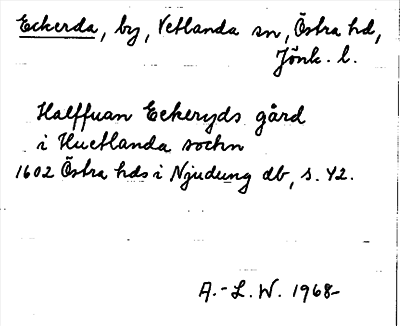 Eckerda, by, Vetlanda sn, Östra hd,
Jönk. l.
Halffuan Eckeryds gård
i Huetlanda sochn
1602 Östra hds i Njudung db, s. 42.
A.-L.W. 1968